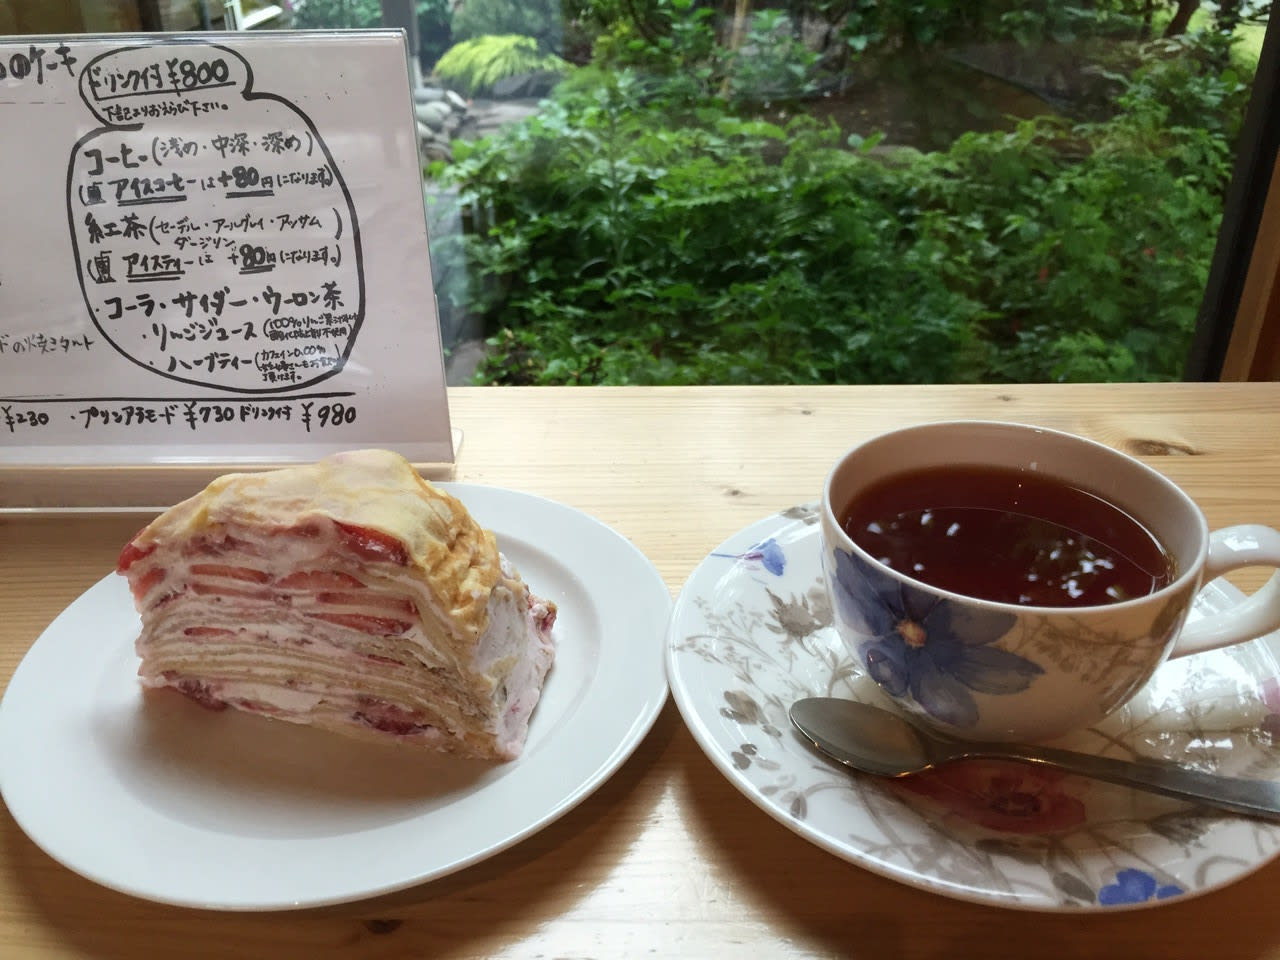 のケーキ
ドリンク付 ¥800
下記よりおえらび下さい。
コーヒー(浅め・中深・深め)
アイスコーヒーは+80円になります。
紅茶(セーデル・アールグレイ・アッサム
ダージリン)
アイスティーは +80円になります。)
・コーラ・サイダー・ウーロン茶
・りんごジュース(100%りんご果汁
酸化防止剤不使用)
・ハーブティー(カフェイン0.00%
頂けます。
ドの焼きタルト
¥230 ・プリンアラモード ¥730 ドリンク付 ¥980